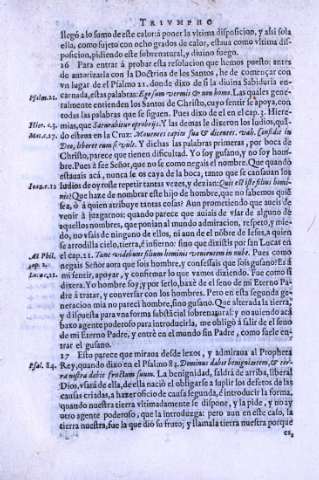 TRIVMPHO
llegò a lo sumo de este calorà poner la vltima disposicion, y assi sola
ella, como sujeto con ocho grados de calor, estaua como vltima dis-
posicion, pidiendo este sobrenatural, y diuino fuego.
26 Para entrar à probar esta resolucion que hemos puesto: antes
de autorizarla con la Doctrina de los Santos, he de començar con
Psalm.21. vn lugar de el Psalmo 21. donde dize de si la diuina Sabiduria en-
carnada, estas palabras: Ego sum vermis & non homo. Las quales gene-
ralmente entienden los Santos de Christo, cuyo sentir se apoya, con
todas las palabras que se siguen. Pues dixo de el en el cap. 3. Hiere-
Hier.23. mias, que Saturabitur opprobrijs. Y las demas le dizeron los Iudios, quã-
Mat.c.27. do estaua en la Cruz: Mouentes capita sua & dicentes, vah. Confidit in
Deo, liberet eum si vult. Y dichas las palabras primeras, por boca de
Christo, parece que tienen dificultad. Yo soy gusano, y no soy hom-
bre. Pues à fee Señor, que no se como negais el nombre. Que quando
estauais acà, nunca se os caya de la boca, tanto que se cansauan los
Ioan.c.12 Iudios de oyros le repetir tantas vezes, y dezian: Quis est iste filius homi-
nis? Que haze de nombrar este hijo de hombre, que no sabemos quiẽ
sea, ò à quien atribuye tantas cosas? Aun prometiendo que aueis de
venir à juzgarnos: quando parece que auiais de vsar de alguno de
aquellos nombres, que ponian al mundo admiracion, respeto, y mie-
do, no vsais de ninguno de ellos, ni aun de el nõbre de Iesus, a quien
se arrodilla cielo, tierra, è infierno: sino que dixistis por san Lucas en
Al Phil. el cap. 21. Tunc videbunt filium hominis venientem in nube. Pues como
cap. 2. negais Señor aora que sois hombre, y confessais que sois gusano? Ea à
Luc.c.21. mi sentir, apoyar, y confirmar lo que vamos diziendo. Fue como si
dixera. Yo hombre soy, y por serlo, baxè de el seno de mi Eterno Pa-
dre à tratar, y conuersar con los hombres. Pero en esta segunda ge-
neracion mia no pareci hombre, sino gusano. Que alterada la tierra,
y dispuesta para vna forma substãcial sobrenatural: y no auiendo acà
baxo agente poderoso para introducirla, me obligò à salir de el seno
de mi Eterno Padre, y entrè en el mundo sin Padre, como suele en-
trar el gusano.
27 Esto parece que miraua desde lexos, y admiraua al Propheta
Psal. 84. Rey, quando dixo en el Psalmo 84. Dominus dabit benignitatem, & ter-
ra nostra dabit fructum suum. La benignidad, saldrà de arriba, liberal
Dios, vsarà de ella, de ella naciò el obligarse a suplir los defetos de las
causas criadas, à hazer oficio de causa segunda, è introducir la forma,
quando nuestra tierra vltimadamente se dispone, y la pide, y no ay
otro agente poderoso, que la introduzga: pero aun en este caso, la
tierra nuestra, fue la que diò su fruto; y llamala tierra nuestra porque